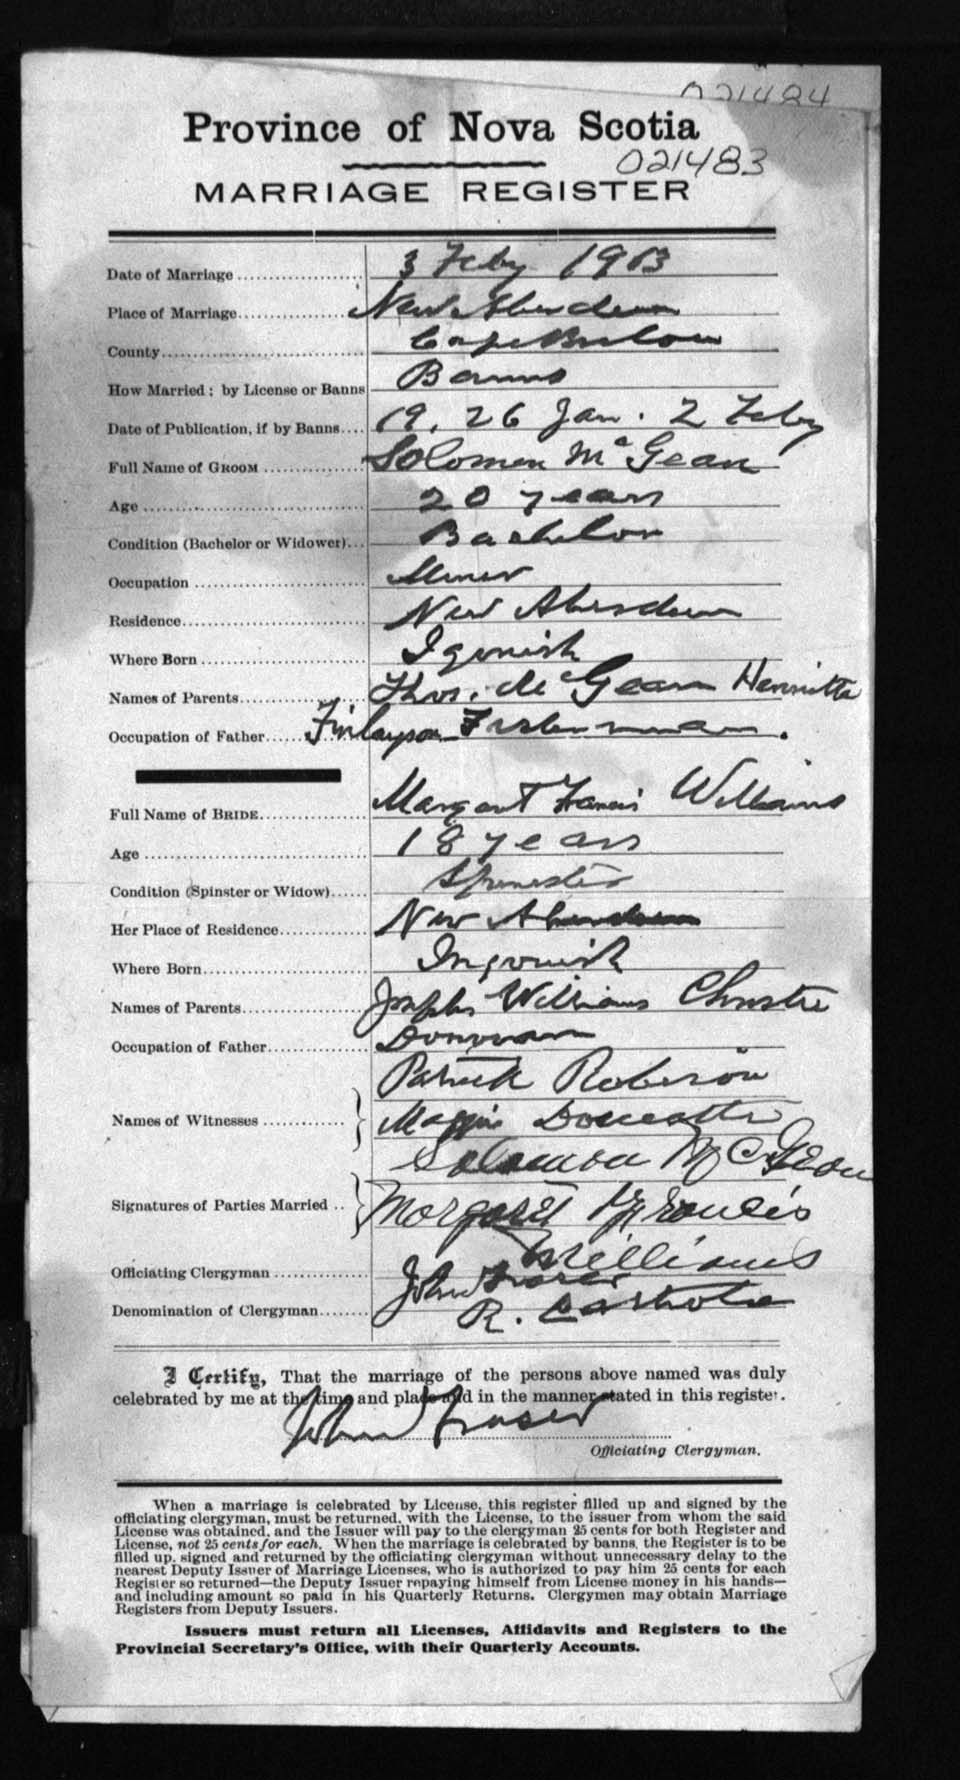 021484
Province of Nova Scotia
021483
MARRIAGE REGISTER
Date of Marriage 3 Feby 1913
Place of Marriage New Aberdeen
County Cape Breton
How Married: by License or Banns Banns
Date of Publication, if by Banns 19, 26 Jan. 2 Feby
Full Name of GROOM Solomon McGean
Age 20 years
Condition (Bachelor or Widower) Bachelor
Occupation Miner
Residence New Aberdeen
Where Born Igonish
Names of Parents Thos. McGean Henrietta
Occupation of Father Finlayson Fisherman.
Full Name of BRIDE Margaret Francis Williams
Age 18 years
Condition (Spinster or Widow) Spinster
Her Place of Residence New Aberdeen
Where Born Ingonish
Names of Parents Joseph Williams Christie
Occupation of Father Donovan
Patrick Roberson
Names of Witnesses Maggie Doucette
Solomon McGean
Signatures of Parties Married Margaret Francis
Williams
Officiating Clergyman John Fraser
Denomination of Clergyman R. Catholic
I Certify, That the marriage of the persons above named was duly
celebrated by me at the time and place and in the manner stated in this register.
John Fraser
Officiating Clergyman.
When a marriage is celebrated by License, this register filled up and signed by the
officiating clergyman, must be returned, with the License, to the issuer from whom the said
License was obtained, and the Issuer will pay to the clergyman 25 cents for both Register and
License, not 25 cents for each. When the marriage is celebrated by banns, the Register is to be
filled up, signed and returned by the officiating clergyman without unnecessary delay to the
nearest Deputy Issuer of Marriage Licenses, who is authorized to pay him 25 cents for each
Register so returned—the Deputy Issuer repaying himself from License money in his hands—
and including amount so paid in his Quarterly Returns. Clergymen may obtain Marriage
Registers from Deputy Issuers.
Issuers must return all Licenses, Affidavits and Registers to the
Provincial Secretary's Office, with their Quarterly Accounts.